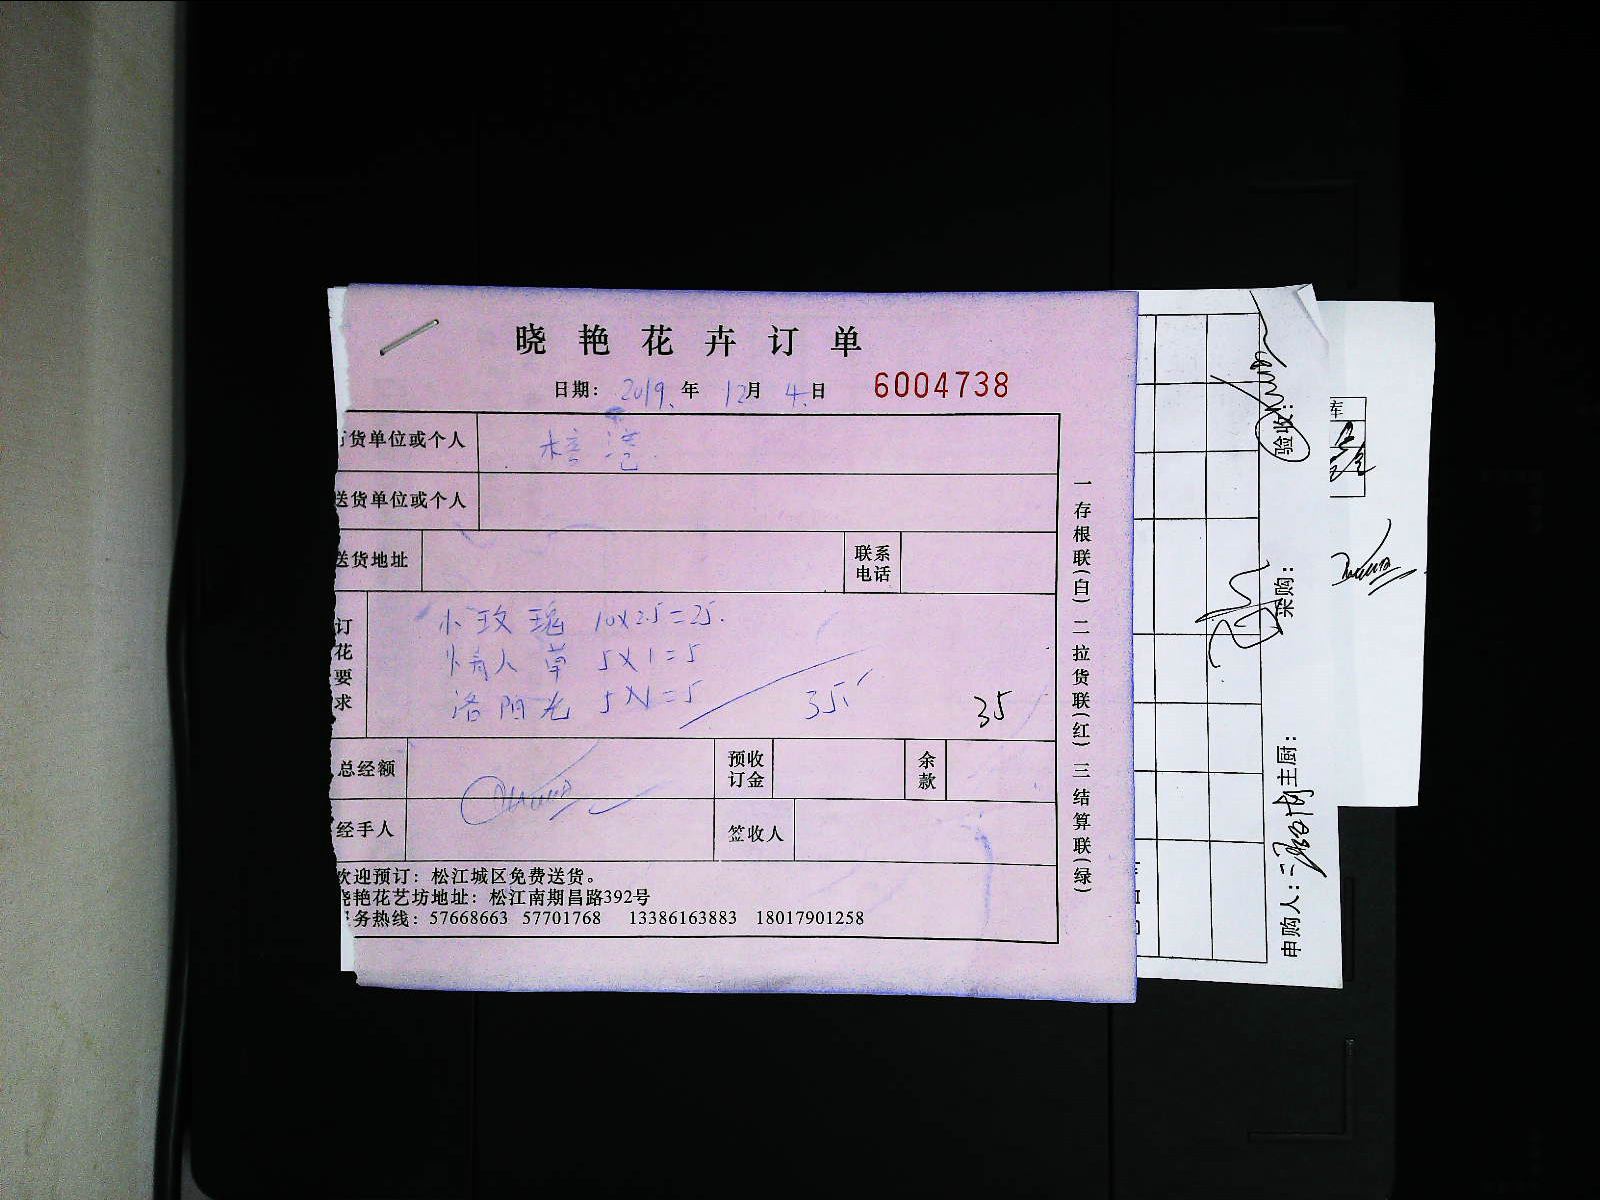 晓艳花卉订单
日期: 2019. 年 12月 4.日 6004738
货单位或个人
送货单位或个人
送货地址 联系电话
订花要求
小玫瑰 10×2.5=25.
情人草 5×1=5
洛阳花 5×1=5 35 35
总经额 预收订金 余款
经手人 签收人
欢迎预订: 松江城区免费送货。
晓艳花艺坊地址: 松江南期昌路392号
务热线: 57668663 57701768 13386163883 18017901258
一存根联(白) 二拉货联(红) 三结算联(绿)
验收:
采购:
主厨:
申购人:
库